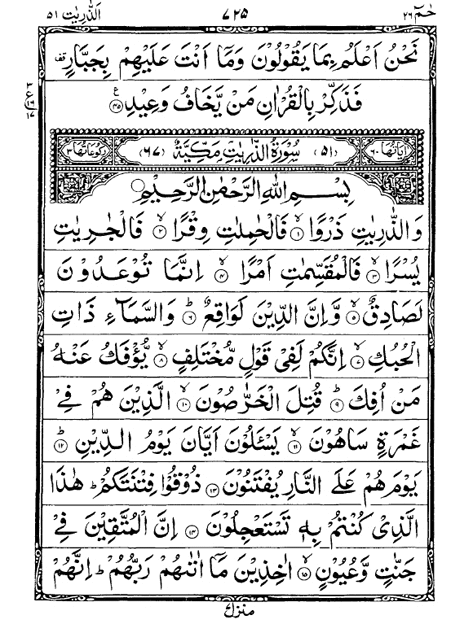 حٰمٓ ٢٦ ٧٢٥ الذّٰرِيٰت ٥١
نَحْنُ اَعْلَمُ بِمَا يَقُوْلُوْنَ وَمَآ اَنْتَ عَلَيْهِمْ بِجَبَّارٍ
فَذَكِّرْ بِالْقُرْاٰنِ مَنْ يَّخَافُ وَعِيْدِ ٤٥
اٰيَاتُهَا ٦٠ (٥١) سُوْرَةُ الذّٰرِيٰتِ مَكِّيَّةٌ (٦٧) رُكُوْعَاتُهَا ٣
بِسْمِ اللّٰهِ الرَّحْمٰنِ الرَّحِيْمِ
وَالذّٰرِيٰتِ ذَرْوًا ١ فَالْحٰمِلٰتِ وِقْرًا ٢ فَالْجٰرِيٰتِ
يُسْرًا ٣ فَالْمُقَسِّمٰتِ اَمْرًا ٤ اِنَّمَا تُوْعَدُوْنَ
لَصَادِقٌ ٥ وَّاِنَّ الدِّيْنَ لَوَاقِعٌ ٦ وَالسَّمَآءِ ذَاتِ
الْحُبُكِ ٧ اِنَّكُمْ لَفِيْ قَوْلٍ مُّخْتَلِفٍ ٨ يُّؤْفَكُ عَنْهُ
مَنْ اُفِكَ ٩ قُتِلَ الْخَرّٰصُوْنَ ١٠ الَّذِيْنَ هُمْ فِيْ
غَمْرَةٍ سَاهُوْنَ ١١ يَسْـَٔلُوْنَ اَيَّانَ يَوْمُ الدِّيْنِ ١٢
يَوْمَ هُمْ عَلَى النَّارِ يُفْتَنُوْنَ ١٣ ذُوْقُوْا فِتْنَتَكُمْ هٰذَا
الَّذِيْ كُنْتُمْ بِهٖ تَسْتَعْجِلُوْنَ ١٤ اِنَّ الْمُتَّقِيْنَ فِيْ
جَنّٰتٍ وَّعُيُوْنٍ ١٥ اٰخِذِيْنَ مَآ اٰتٰىهُمْ رَبُّهُمْ اِنَّهُمْ
منزل ٧